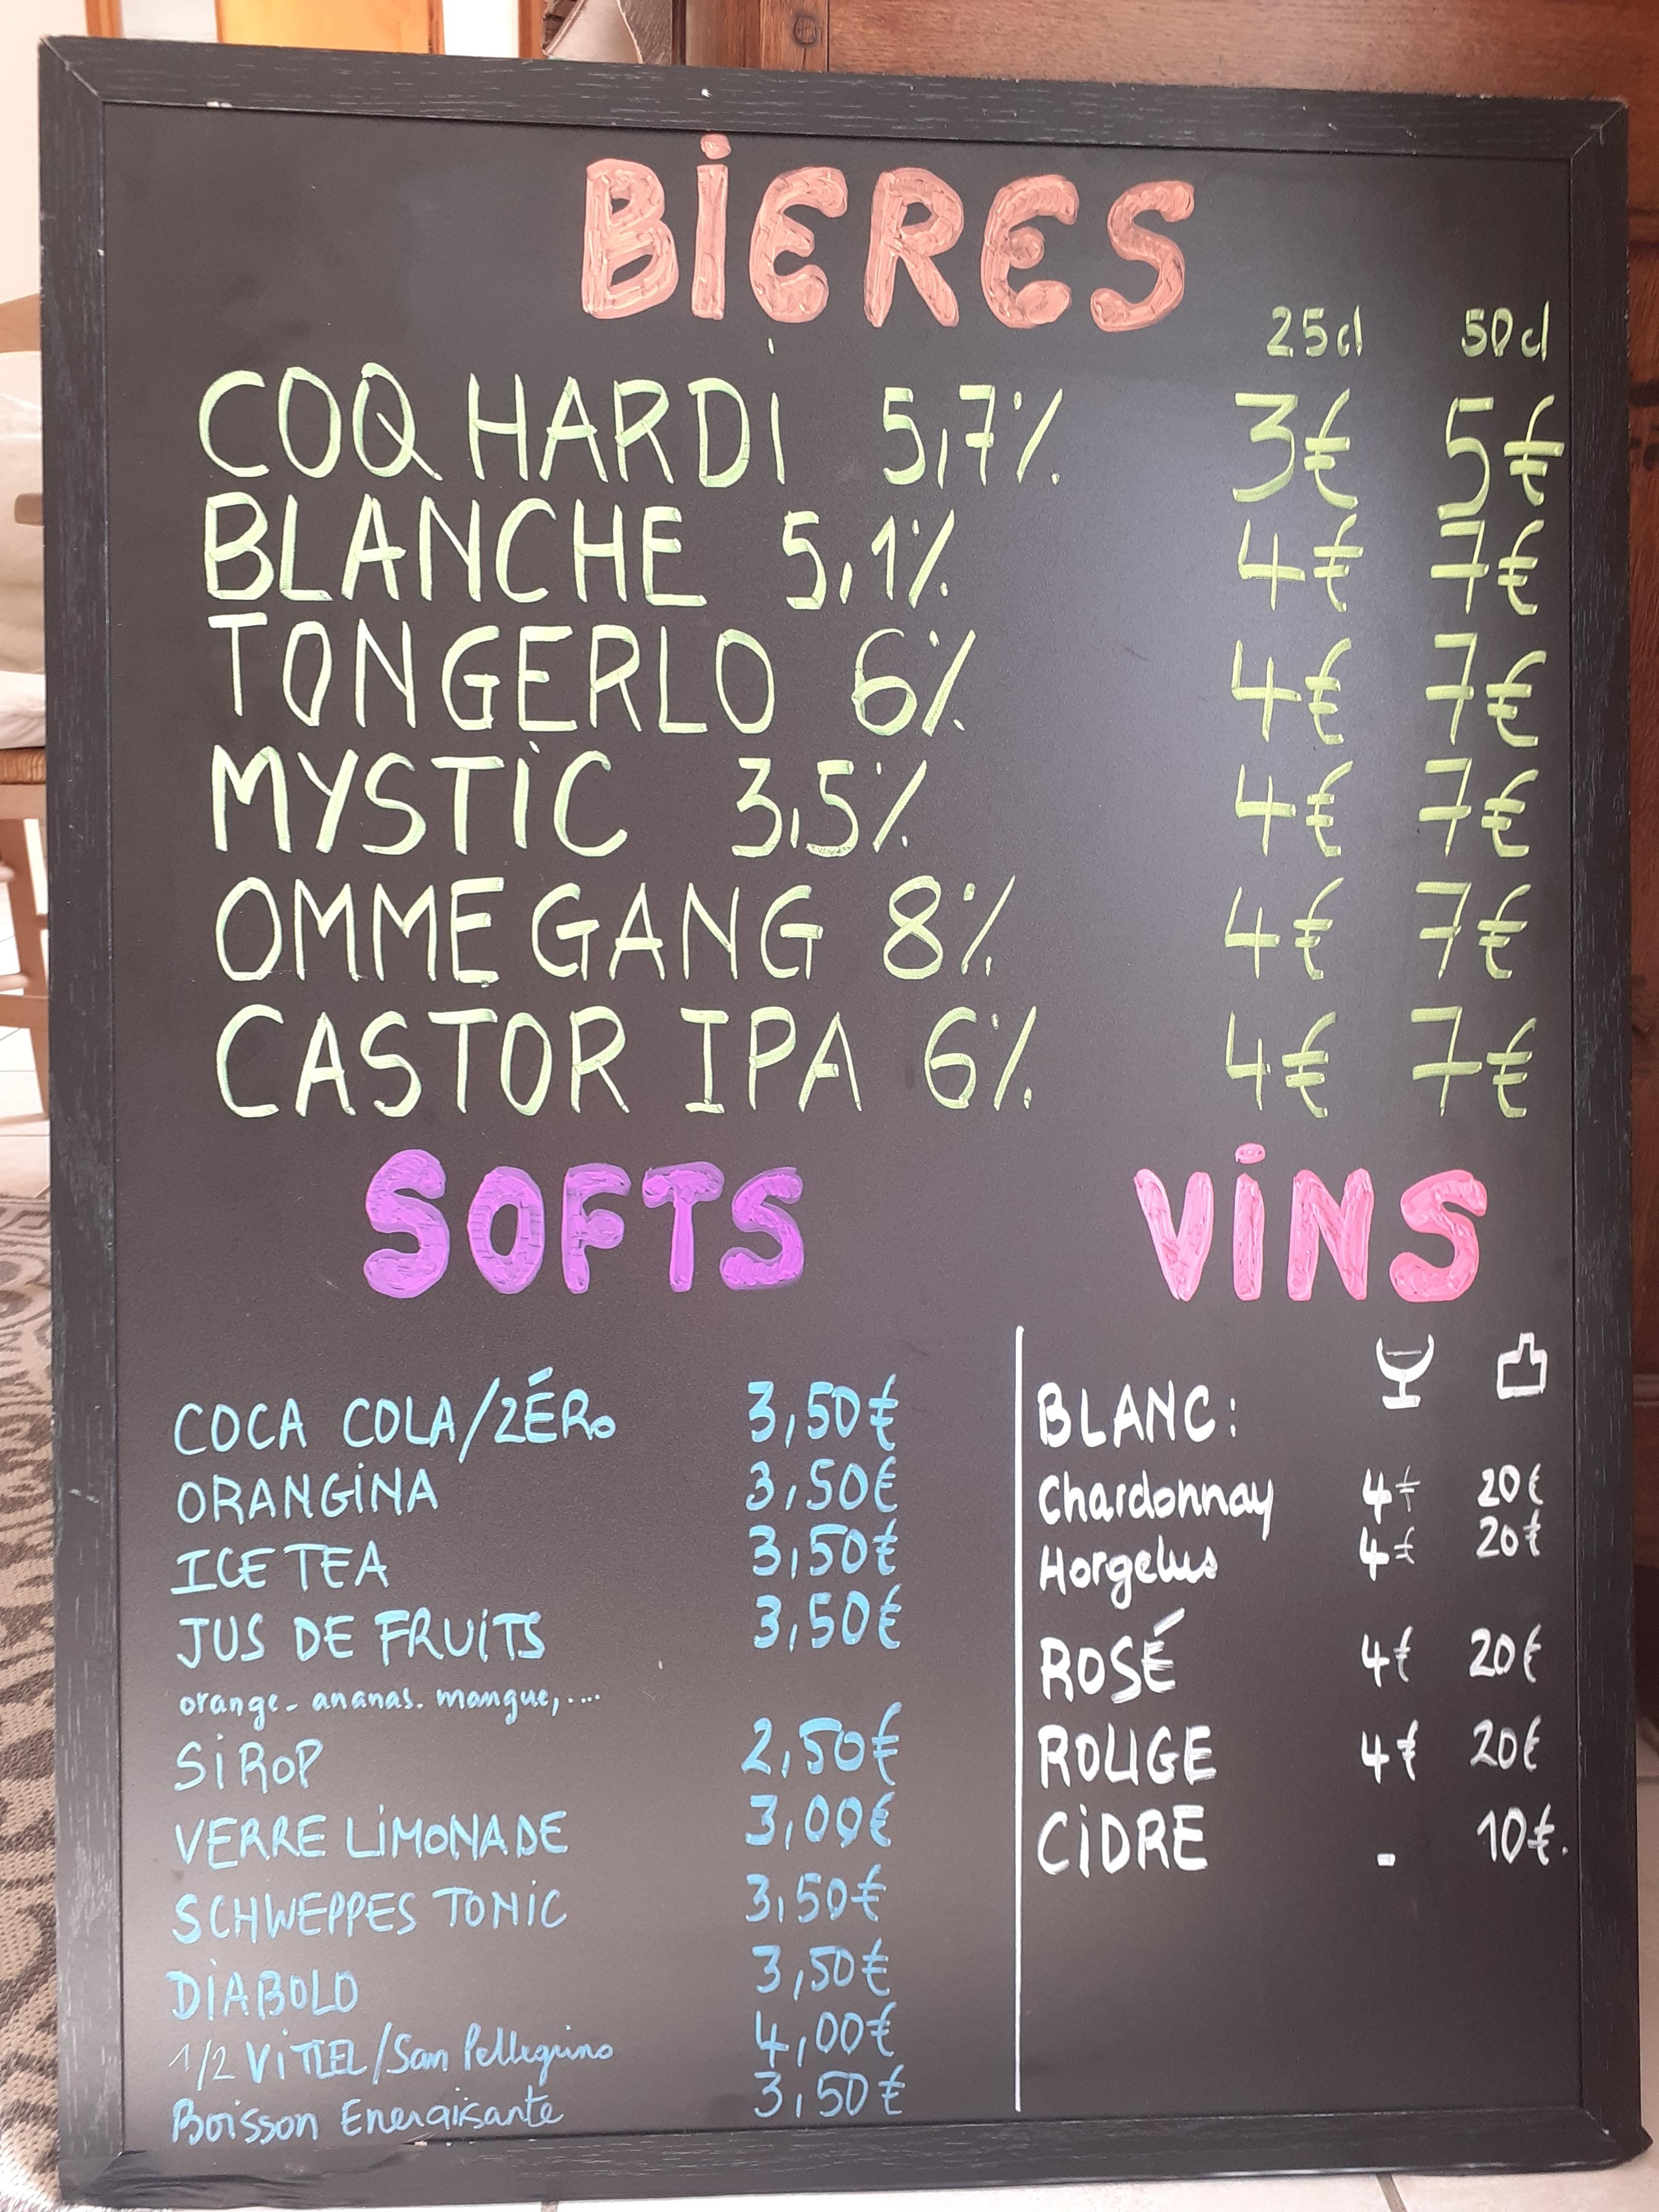 BIERES
25cl 50cl
COQ HARDI 5,7% 3€ 5€
BLANCHE 5,1% 4€ 7€
TONGERLO 6% 4€ 7€
MYSTIC 3,5% 4€ 7€
OMMEGANG 8% 4€ 7€
CASTOR IPA 6% 4€ 7€
SOFTS
COCA COLA/ZÉRo 3,50€
ORANGINA 3,50€
ICE TEA 3,50€
JUS DE FRUITS 3,50€
orange- ananas. mangue,....
SIROP 2,50€
VERRE LIMONADE 3,00€
SCHWEPPES TONIC 3,50€
DIABOLO 3,50€
1/2 VITTEL/San Pellegrino 4,00€
Boisson Energisante 3,50€
VINS
BLANC:
Chardonnay 4€ 20€
Horgelus 4€ 20€
ROSÉ 4€ 20€
ROUGE 4€ 20€
CIDRE - 10€.